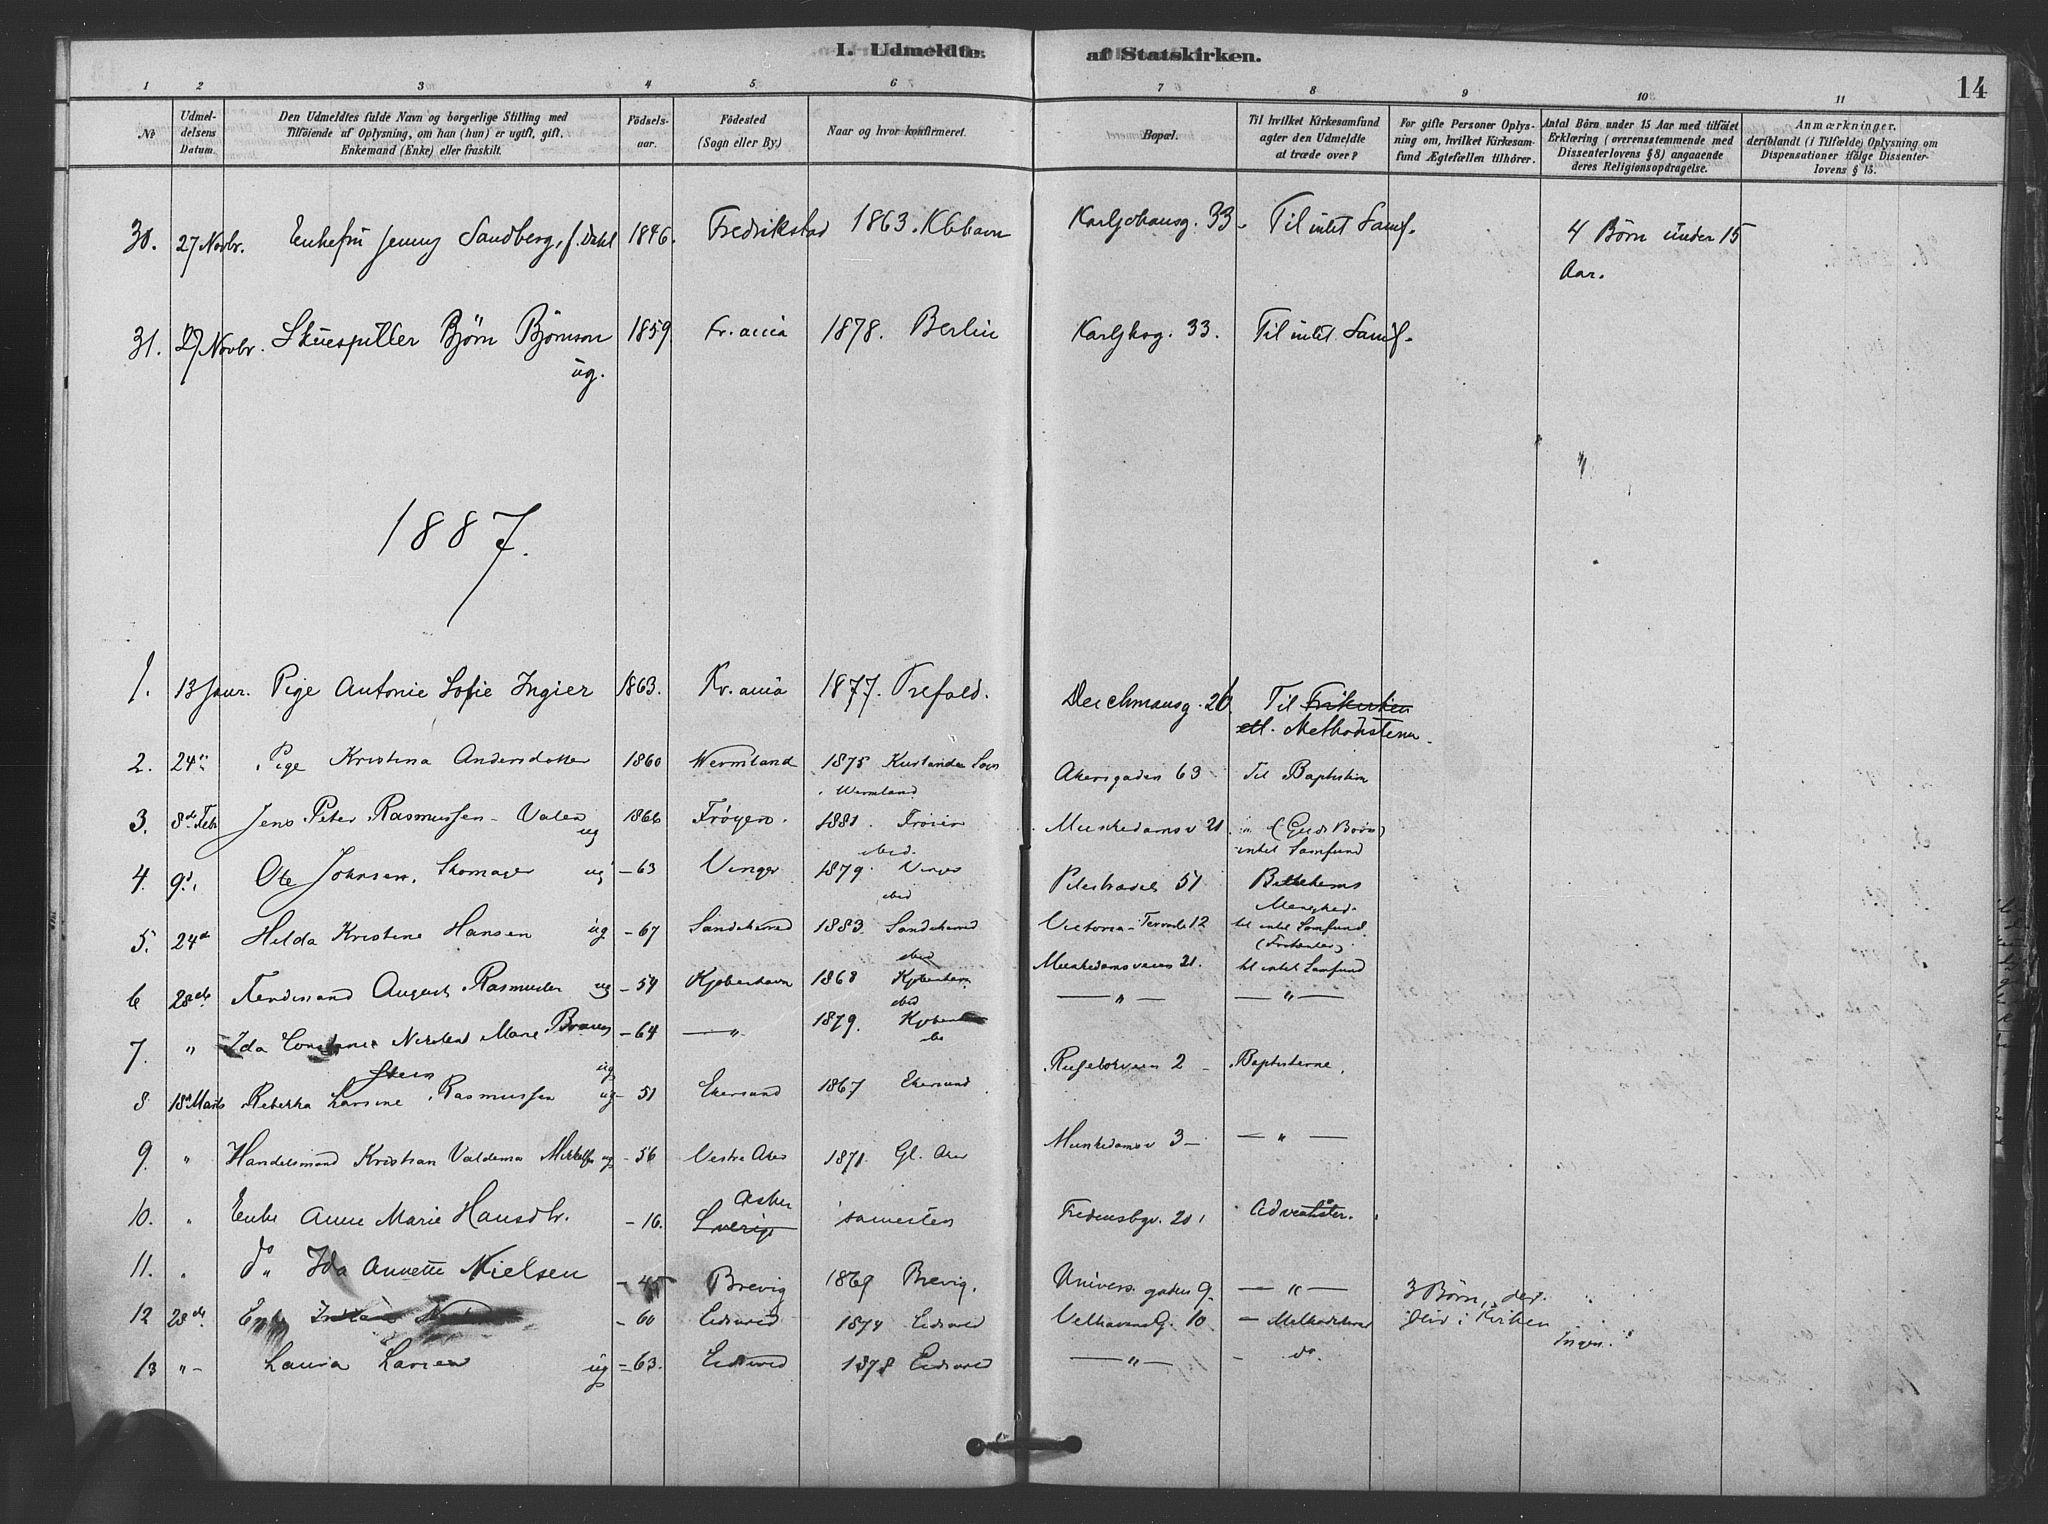 I. Udmeldte af Statskirken.
14
1 2 3 4 5 6 7 8 9 10 11
No
Udmeldelsens Datum.
Den Udmeldtes fulde Navn og borgerlige Stilling med
Tilføiende af Oplysning, om han (hun) er ugift, gift,
Enkemand (Enke) eller fraskilt.
Fødsels-
aar.
Fødested
(Sogn eller By)
Naar og hvor konfirmeret.
Bopæl.
Til hvilket Kirkesamfund
agter den Udmeldte
at træde over?
For gifte Personer Oplys-
ning om, hvilket Kirkesam-
fund Ægtefællen tilhører.
Antal Børn under 15 Aar med tilføiet
Erklæring (overensstemmende med
Dissenterlovens § 8) angaaende
deres Religionsopdragelse.
Anmærkninger.
deriblandt (i Tilfælde) Oplysning om
Dispensationer ifølge Dissenter-
lovens § 15.
30. 27 Novbr. Enkefru Jenny Sandberg, f. Dahl 1846. Fredrikstad 1863. Kbhavn Karljohansg. 33. Til intet Samf. 4 Børn under 15
Aar.
31. 27 Novbr. Skuespiller Bjørn Bjørnson 1859. Kr.ania 1878. Berlin Karljhsg. 33. Til intet Samf.
ug.
1887.
1. 13 Janr. Pige Antonie Sofie Ingier 1863. Kr.ania 1877. Trefold. Deichmansg. 26 Til Frikirken
etl. Methodisterne.
2. 24 Pige Kristina Andersdatter 1860 Wermland 1875 Akersgaden 63 Til Baptisterne
Wermland
3. 8de Febr Jens Peter Rasmussen Valen ug 1866 Frøyen. 1881. Munkedamsv 21 (Guds Børn)
intet Samfund
4. 9d. Ole Johnsen, Skomager ug - 63 Vinger 1879. Vinger Pilestrædet 51 Bethlehems
Menighed.
5. 24d Hilda Kristine Hansen ug - 67 Sandeherred 1883. Sandeherred Victoria Terrasse 12 til intet Samfund
6 28de Ferdinand August Rasmussen ug - 54 Kjøbenhavn 1868 Kjøbenhavn Munkedamsveien 21. til intet Samfund
7. " Ida Marie ug - 64 — " 1879. — " — — " —
8 18d Marts Rebekka Larsine Rasmussen ug - 51 Ekersund 1867 Ekersund 2 Baptisterne.
9. " Handelsmand Kristian Valdemar ug - 56 Vestre Aker 1871. Gl. Aker Munkedamsv 3 — " —
10. " Enke Anne Marie Hansdtr. - 16. Asker Sverige sammesteds Fredensbgv. 20 Adventister.
11. " do Ida Annette Nielsen - 45 Brevig 1869 Brevig. Univers. gaden 9. — " — 3 Børn, der
12 28de Enke - 60 Eidsvold 1874 Eidsvold Velhavens G. 10 — Methodisterne bliv i Kirken
Ingen.
13 " - Laura Larsen ug - 63. Eidsvold 1878 Eidsvold — " — - do.